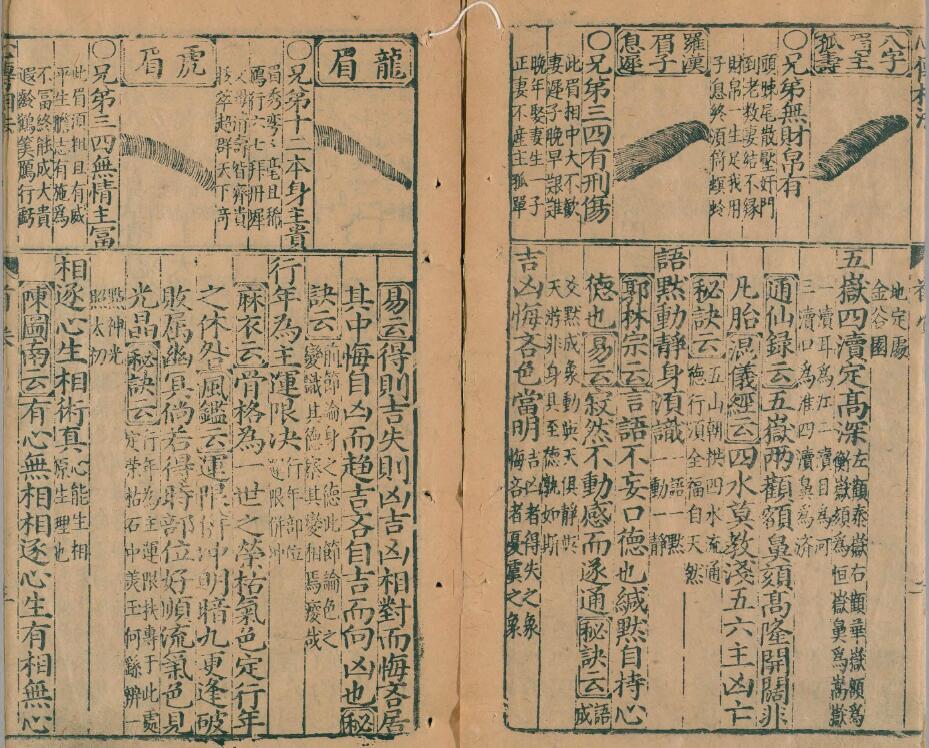 八字眉主孤壽
○兄弟無財帛有
頭踈尾散壓奸門
到老教妻結不緣
財帛一生足我用
子息終須倚螟蛉
羅漢眉子息遲
○兄弟三四有刑傷
此眉相中大不歡
妻遲子晚早艱難
晚年娶妾生一子
正妻不產主孤單
地定處
金谷園
五嶽四瀆定髙深左顴泰嶽右顴華嶽額爲
衡嶽頦爲恒嶽鼻爲嵩嶽
一瀆耳爲江二瀆目爲河
三瀆口爲淮四瀆鼻爲济
通仙録云五嶽兩顴額鼻頦髙隆開闊非
凡胎混儀經云四水莫教淺五六主凶亡
秘訣云五山朝拱四水流通
德行須全福自天然
語默動靜身須識一語一默
一動一靜
郭林宗云言語不妄口德也緘默自持心
德也易云寂然不動感而遂通秘訣云語
成
交默成象動與天俱静與
天游非身具至德孰如斯
吉凶悔吝色當明吉凶者得失之象
悔吝者憂虞之象
龍眉
○兄第十二本身主貴
眉秀彎彎毫且稀
鴈行六七拜丹墀
父母清壽皆齊貴
㧞萃超群天下奇
虎眉
○兄第三四無情主冨
此眉須粗且有威
平生膽志有施爲
不冨終能成大貴
遐齡鶴筭鴈行虧
易云得則吉失則凶吉凶相對而悔吝居
其中悔自凶而趍吉吝自吉而向凶也秘
訣云前節論身之德此節論色之
變識其德察其變相焉廋哉
行年為主運限决行年部位
運限併冲
麻衣云骨格為一世之榮枯氣色定行年
之休咎風鑑云運限併冲明暗九更逢破
敗属幽冥倘若得時部位好順流氣色見
光晶秘訣云行年為主運限扶專于此處
定榮枯石中美玉何繇辨一
點神光
照太初
相逐心生相術真心能生相
原生理也
陳圖南云有心無相相逐心生有相無心